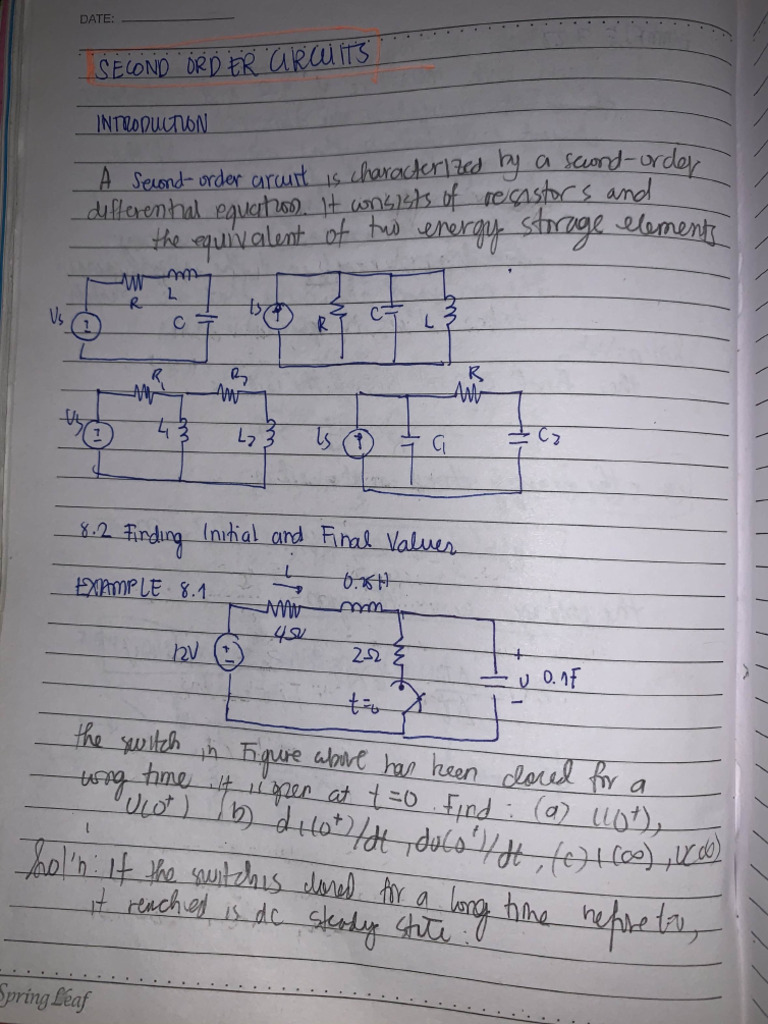 DATE:
SECOND ORDER CIRCUITS
INTRODUCTION
A second-order circuit is characterized by a second-order
differential equation. It consists of resistors and
the equivalent of two energy storage elements
R L
Vs C
Is R C L
R1 R2
Vs L1 L2
R
Is C1 C2
8.2 Finding Initial and Final Values
EXAMPLE 8.1
i 0.25H
4Ω
12V 2Ω + v - 0.1F
t=0
the switch in Figure above has been closed for a
long time. it is open at t=0. Find: (a) i(0⁺),
v(0⁺) (b) di(0⁺)/dt, dv(0⁺)/dt, (c) i(∞), v(∞)
Sol'n: If the switch is closed for a long time before t=0,
it reached is dc steady state.
Spring Leaf